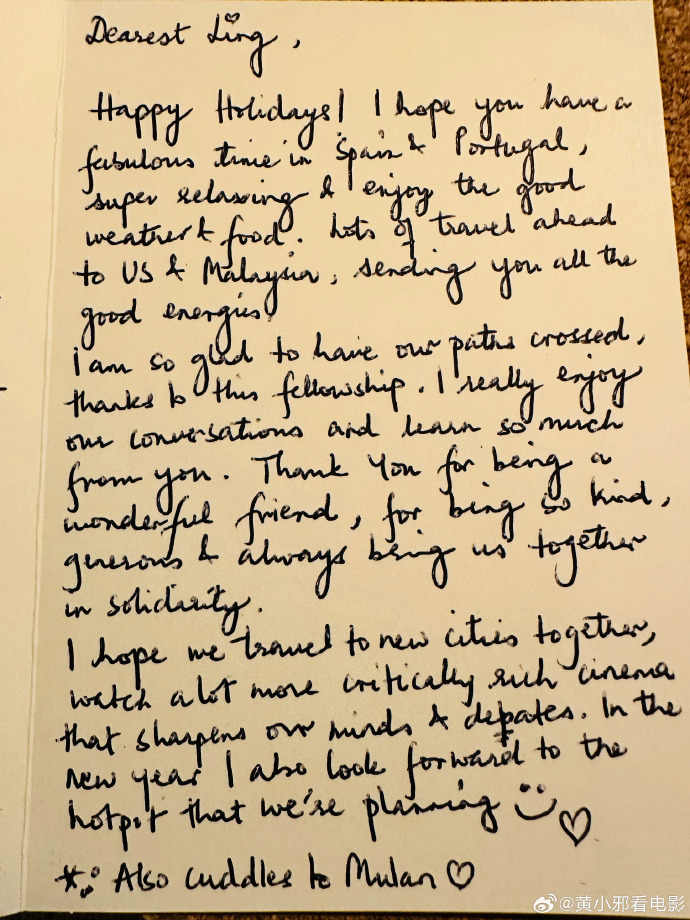 Dearest Ling,
Happy Holidays! I hope you have a
fabulous time in Spain & Portugal,
super relaxing & enjoy the good
weather & food. Lots of travel ahead
to US & Malaysia, sending you all the
good energies.
I am so glad to have our paths crossed,
thanks to this fellowship. I really enjoy
our conversations and learn so much
from you. Thank You for being a
wonderful friend, for being so kind,
generous & always being us together
in solidarity.
I hope we travel to new cities together,
watch a lot more critically rich cinema
that sharpens our minds & debates. In the
new year I also look forward to the
hotpot that we're planning
Also cuddles to Mulan
@黄小邪看电影